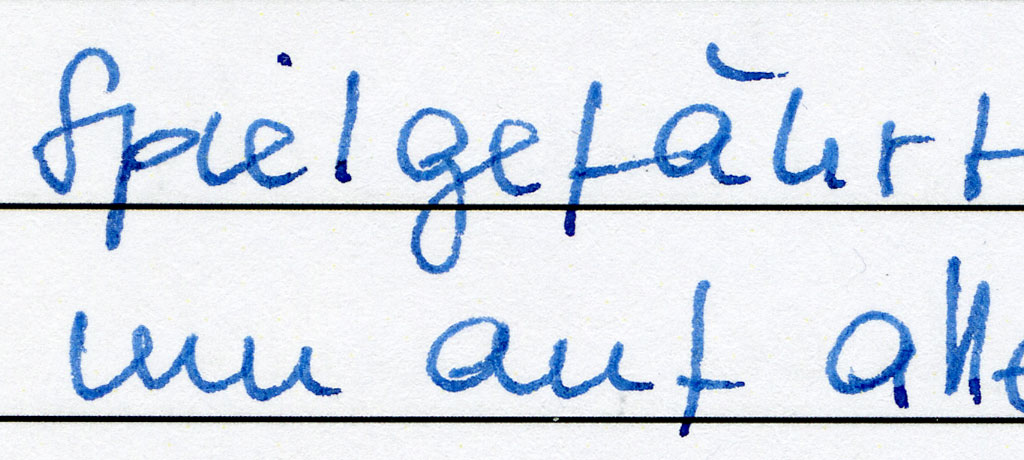 Spielgefährt
um auf alle